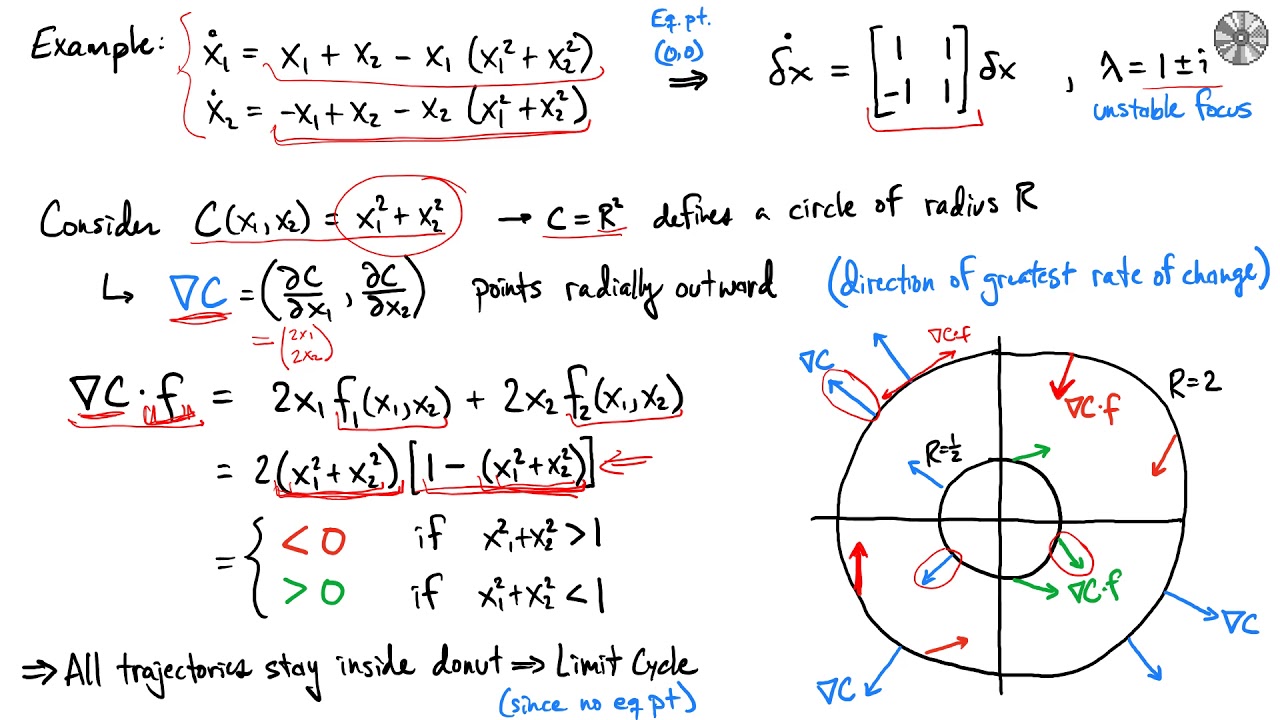 Example: ẋ₁ = x₁ + x₂ - x₁ (x₁² + x₂²)
ẋ₂ = -x₁ + x₂ - x₂ (x₁² + x₂²)
Eq. pt.
(0,0)
⇒ δẋ = [1 1; -1 1] δx , λ = 1 ± i
unstable focus
Consider C(x₁,x₂) = x₁² + x₂² → C = R² defines a circle of radius R
↳ ∇C = (∂C/∂x₁ , ∂C/∂x₂) points radially outward (direction of greatest rate of change)
= (2x₁ 2x₂)
∇C · f = 2x₁ f₁(x₁,x₂) + 2x₂ f₂(x₁,x₂)
= 2(x₁² + x₂²) [1 - (x₁² + x₂²)] ⇐
= { < 0 if x₁² + x₂² > 1
> 0 if x₁² + x₂² < 1
⇒ All trajectories stay inside donut ⇒ Limit Cycle
(since no eq pt)
∇C·f
∇C
R=2
∇C·f
R=½
∇C·f
∇C
∇C